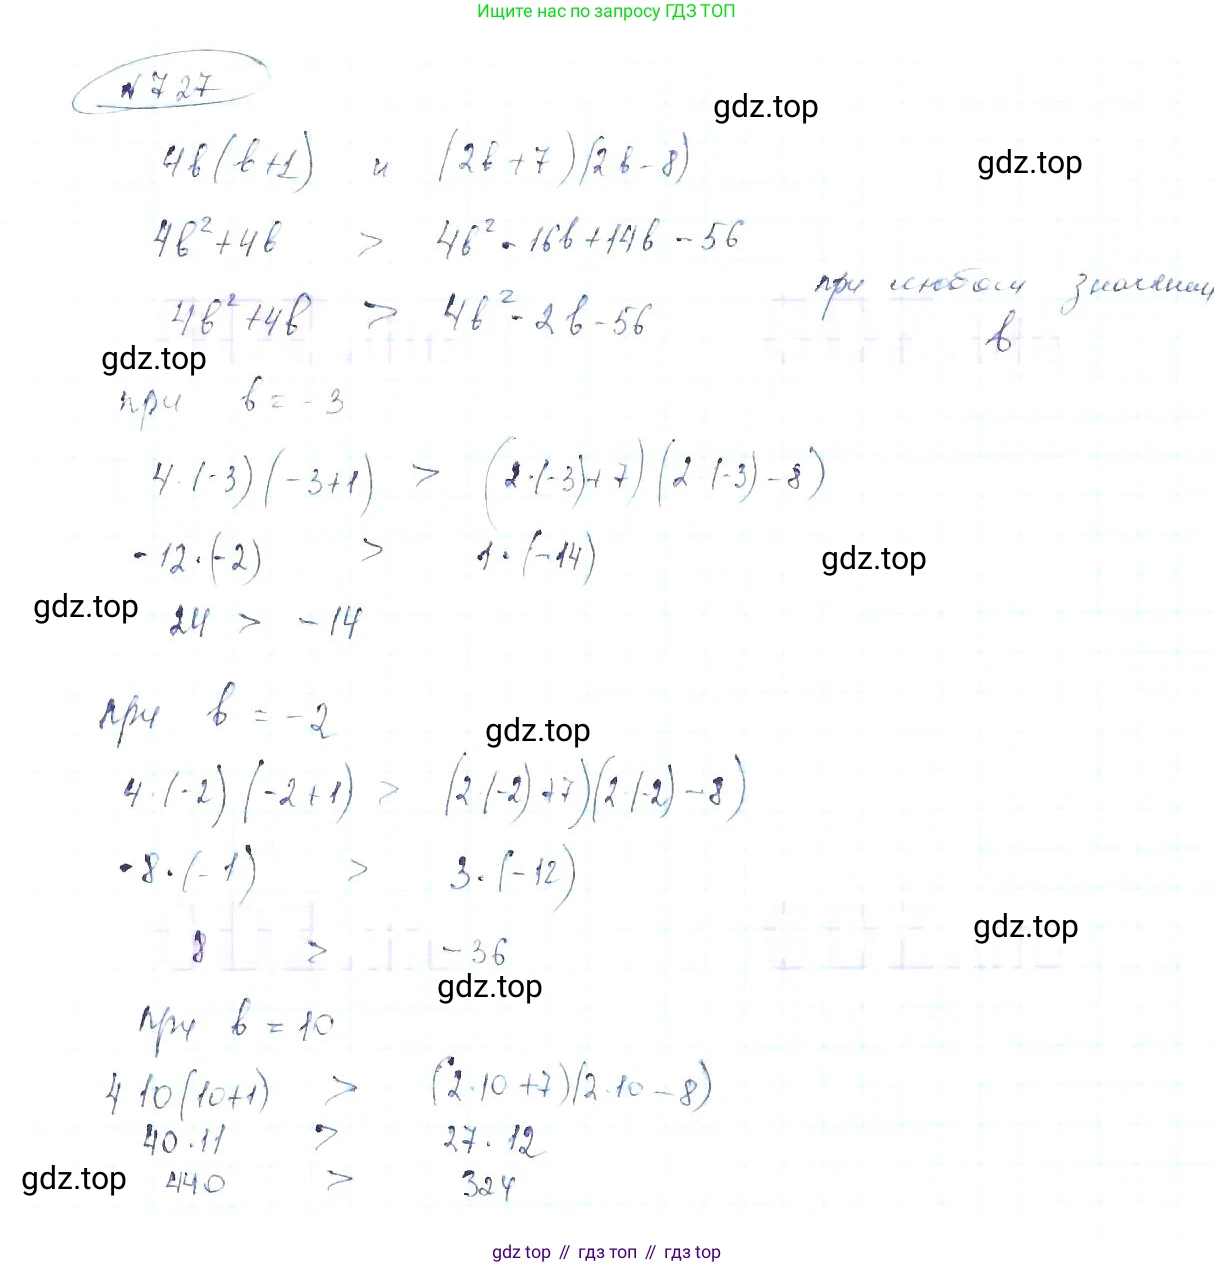 Ищите нас по запросу ГДЗ ТОП
№ 727
gdz.top
4b(b+1) и (2b+7)(2b-8)
gdz.top
4b²+4b > 4b²-16b+14b-56
4b²+4b > 4b²-2b-56 при любом значении b
gdz.top
при b = -3
4·(-3)(-3+1) > (2·(-3)+7)(2·(-3)-8)
-12·(-2) > 1·(-14)
gdz.top
gdz.top
24 > -14
при b = -2
gdz.top
4·(-2)(-2+1) > (2·(-2)+7)(2·(-2)-8)
-8·(-1) > 3·(-12)
gdz.top
8 > -36
gdz.top
при b = 10
4 10(10+1) > (2·10+7)(2·10-8)
40·11 > 27·12
gdz.top
440 > 324
gdz.top // гдз топ // gdz top